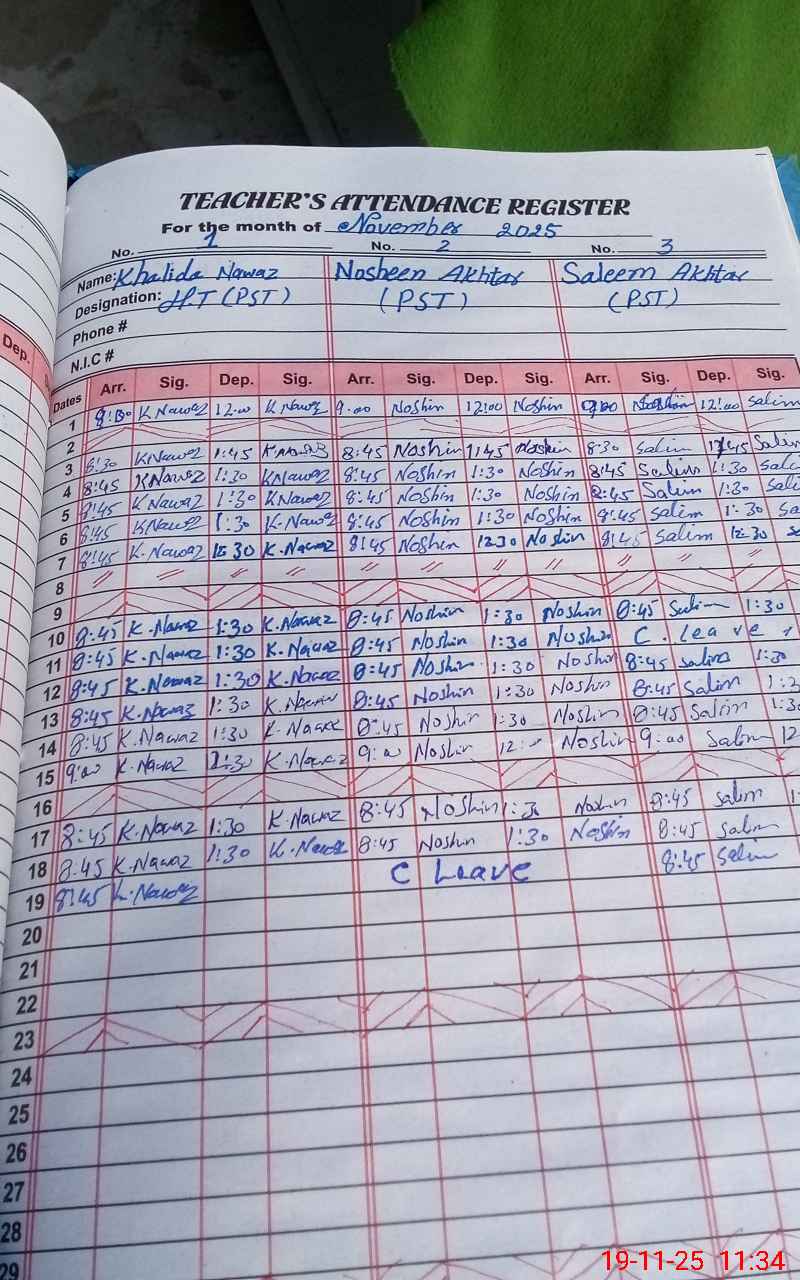 TEACHER'S ATTENDANCE REGISTER
For the month of November 2025
No. 1 No. 2 No. 3
Name: Khalida Nawaz Nosheen Akhtar Saleem Akhtar
Designation: H.T (PST) (PST) (PST)
Phone #
N.I.C #
Dep.
Dates Arr. Sig. Dep. Sig. Arr. Sig. Dep. Sig. Arr. Sig. Dep. Sig.
1 K Nawaz 12:00 K Nawaz 9:00 Noshin 12:00 Noshin 9:00 12:00 Salim
2
3 8:30 K Nawaz 1:45 K Nawaz 8:45 Noshin 1:45 Noshin 8:30 Salim 1:45 Salim
4 8:45 K Nawaz 1:30 K Nawaz 8:45 Noshin 1:30 Noshin 8:45 Salim 1:30
5 8:45 K Nawaz 1:30 K Nawaz 8:45 Noshin 1:30 Noshin 8:45 Salim 1:30
6 8:45 K Nawaz 1:30 K. Nawaz 8:45 Noshin 1:30 Noshin 8:45 Salim 1:30
7 8:45 K. Nawaz 12:30 K. Nawaz 8:45 Noshin 12:30 Noshin 8:45 Salim 12:30
8 〃 〃 〃 〃 〃 〃 〃 〃 〃 〃 〃
9
10 8:45 K. Nawaz 1:30 K. Nawaz 8:45 Noshin 1:30 Noshin 8:45 Salim 1:30
11 8:45 K. Nawaz 1:30 K. Nawaz 8:45 Noshin 1:30 Noshin C. Leave
12 8:45 K. Nawaz 1:30 K. Nawaz 8:45 Noshin 1:30 Noshin 8:45 Salim 1:30
13 8:45 K. Nawaz 1:30 K. Nawaz 8:45 Noshin 1:30 Noshin 8:45 Salim
14 8:45 K. Nawaz 1:30 K. Nawaz 8:45 Noshin 1:30 Noshin 8:45 Salim
15 9:00 K. Nawaz 12:30 K. Nawaz 9:00 Noshin 12:00 Noshin 9:00 Salim 12
16
17 8:45 K. Nawaz 1:30 K. Nawaz 8:45 Noshin 1:30 Noshin 8:45 Salim
18 8:45 K. Nawaz 1:30 K. Nawaz 8:45 Noshin 1:30 Noshin 8:45 Salim
19 8:45 K. Nawaz C Leave 8:45 Salim
20
21
22
23
24
25
26
27
28
29
19-11-25 11:34